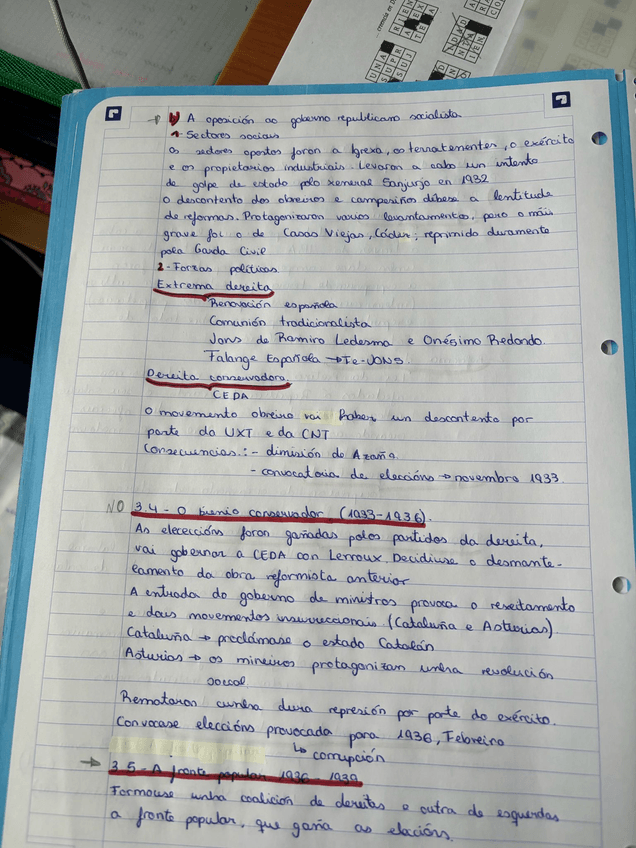 A oposición ao goberno republicano socialista
1- Sectores sociais
Os sectores opostos foron a Igrexa, os terratenentes, o exército
e os propietarios industriais. Levaron a cabo un intento
de golpe de estado polo xeneral Sanjurjo en 1932
O descontento dos obreiros e campesiños débese a lentitude
de reformas. Protagonizaron varios levantamentos, pero o máis
grave foi o de Casas Viejas, Cádiz; reprimido duramente
pola Garda Civil
2- Forzas políticas
Extrema dereita
Renovación española
Comunión tradicionalista
Jons de Ramiro Ledesma e Onésimo Redondo.
Falange Española → Fe-JONS.
Dereita conservadora
CEDA
O movemento obreiro vai haber un descontento por
parte da UXT e da CNT
Consecuencias: - dimisión de Azaña.
- convocatoria de eleccións → novembro 1933.
NO 3.4 - O bienio conservador (1933-1936).
As eleccións foron gañadas polos partidos da dereita,
vai gobernar a CEDA con Lerroux. Decidiuse o desmante-
lamento da obra reformista anterior
A entrada do goberno de ministros provoca o
e dous movementos insurreccionais (Cataluña e Asturias).
Cataluña → proclámase o estado Catalán
Asturias → os mineiros protagonizan unha revolución
social
Remataron cunha dura represión por parte do exército.
Convocase eleccións provocada para 1936, Febreiro
↳ corrupción
→ 3.5 - A fronte popular 1936-1939
Formouse unha coalición de dereitas e outra de esquerdas
a fronte popular, que gaña as eleccións.
UNA
SUPR
SUJ